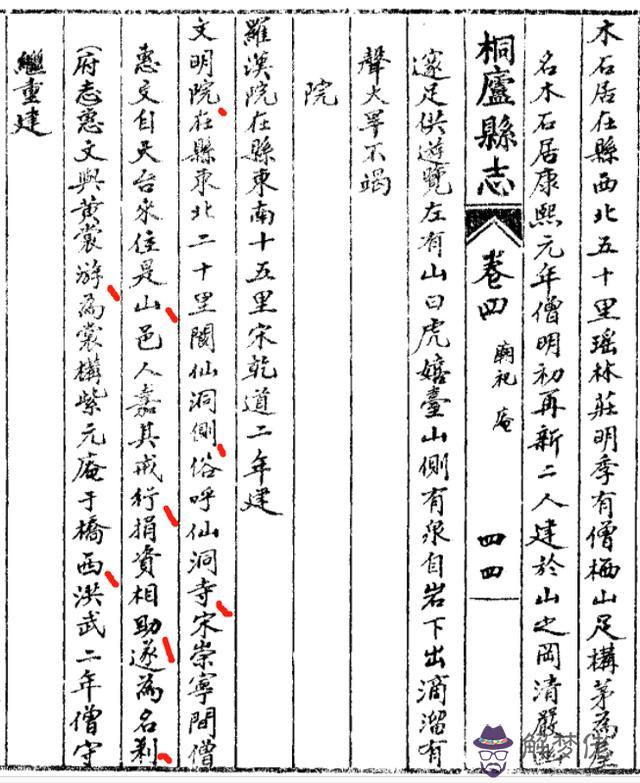 木石居在縣西北五十里瑶林莊明季有僧栖山足構茅為屋
名木石居康熙元年僧明初再新二人建於山之岡清嚴
桐廬縣志 卷四 廟祀 庵 四四
邃足供遊覽左有山曰虎嬉臺山側有泉自岩下出滴溜有
聲大旱不竭
院
羅漢院在縣東南十五里宋乾道二年建
文明院在縣東北二十里閬仙洞側俗呼仙洞寺宋崇寧間僧
惠文自天台來住是山邑人嘉其戒行捐資相助遂為名刹
(府志惠文與黄裳游為裳構紫元庵于橋西洪武二年僧守
繼重建
解梦佬